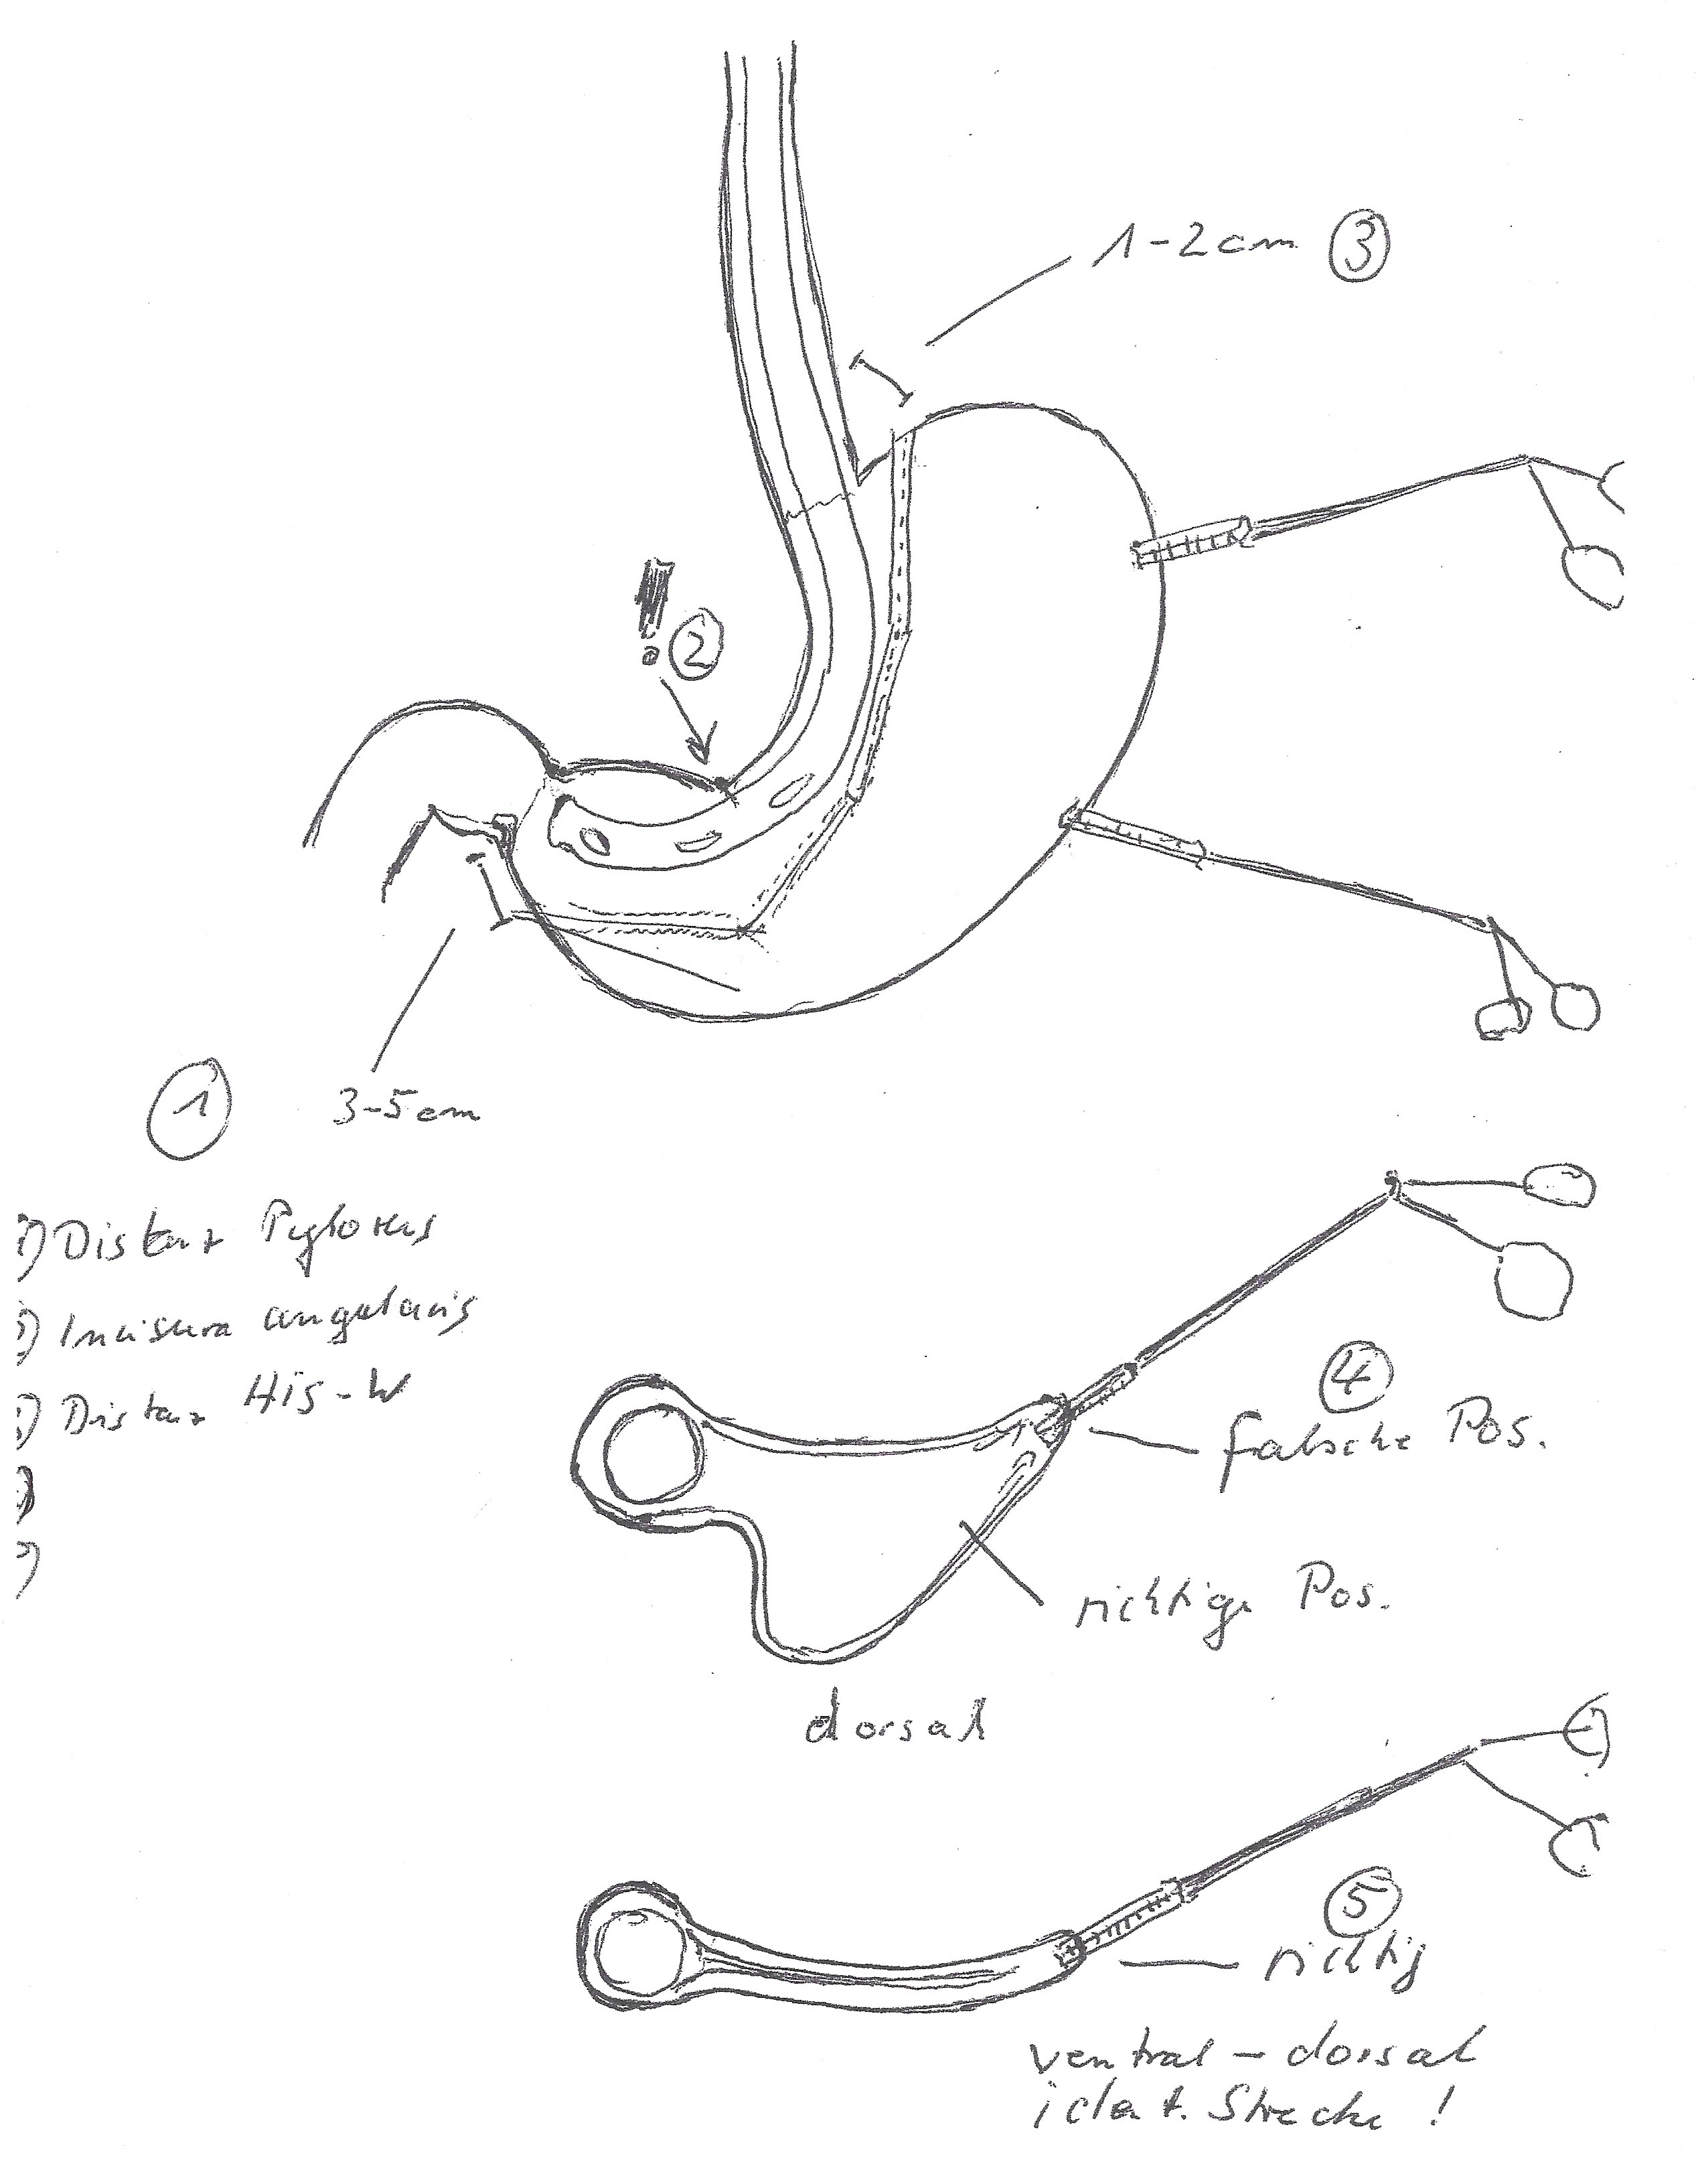 1-2cm ③
! ②
①
3-5cm
1) Distanz Pylorus
) Incisura angularis
) Distanz His-W
)
)
④
falsche Pos.
richtige Pos.
dorsal
⑤
richtig
ventral - dorsal
ident. Strecke !